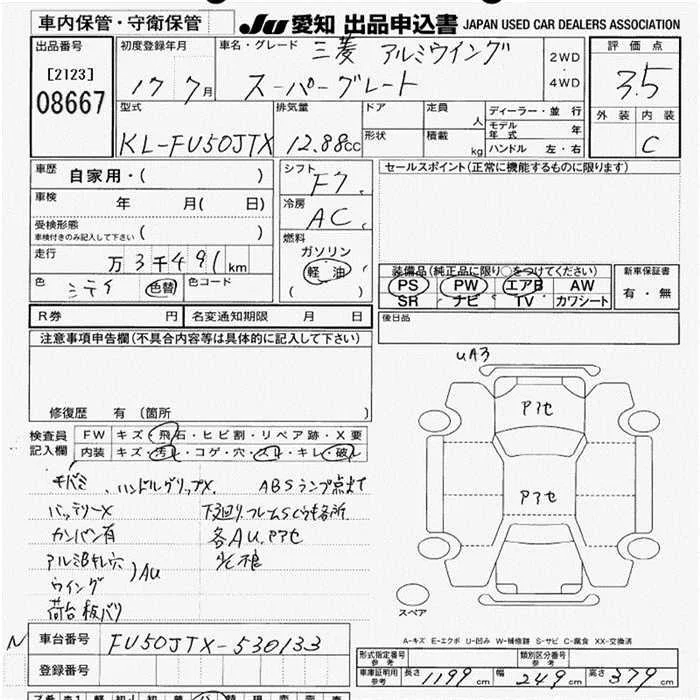 車内保管・守衛保管 JU 愛知 出品申込書 JAPAN USED CAR DEALERS ASSOCIATION
出品番号 初度登録年月 車名・グレード 三菱 アルミウイング 2WD・4WD 評価点
[2123] 17 7月 スーパーグレート 3.5
08667
型式 排気量 ドア 定員 人 ディーラー・並行 外装 内装
KL-FU50JTX 12.88cc 形状 積載 kg モデル年式 年 C
ハンドル 左・右
車歴 自家用・( ) シフト F7 セールスポイント(正常に機能するものに限ります)
車検 年 月( 日) 冷房 AC
受検形態 ( )
車検付きのみ記入して下さい
燃料 ガソリン
走行 万3千491km 軽油
装備品(純正品に限り○をつけてください) 新車保証書
色 色替 色コード ( ) PS PW エアB AW 有・無
SR ナビ TV カワシート
R券 円 名変通知期限 月 日 後日品
注意事項申告欄(不具合内容等は具体的に記入して下さい)
UA3
修復歴 有(箇所 )
検査員 FW キズ・飛石・ヒビ割・リペア跡・X要
記入欄 内装 キズ・汚レ・コゲ・穴・スレ・キレ・破レ
ハンドルグリップX ABSランプ点灯
バッテリーX
カンバン有 各AU.アアセ
ウイング )AU
荷台板バリ
アアセ
アアセ
スペア
A-キズ E-エクボ U-凹み W-補修跡 S-サビ C-腐食 XX-交換済
N 車台番号 FU50JTX-530133
登録番号
形式指定番号 参考 類別区分番号 参考
車庫証明用 参考 長さ 1199cm 幅 249cm 高さ 379cm